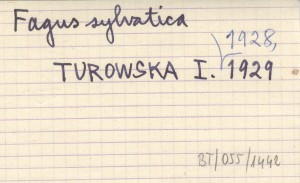 Fagus sylvatica
1928,
TUROWSKA I. 1929
BT/055/1442